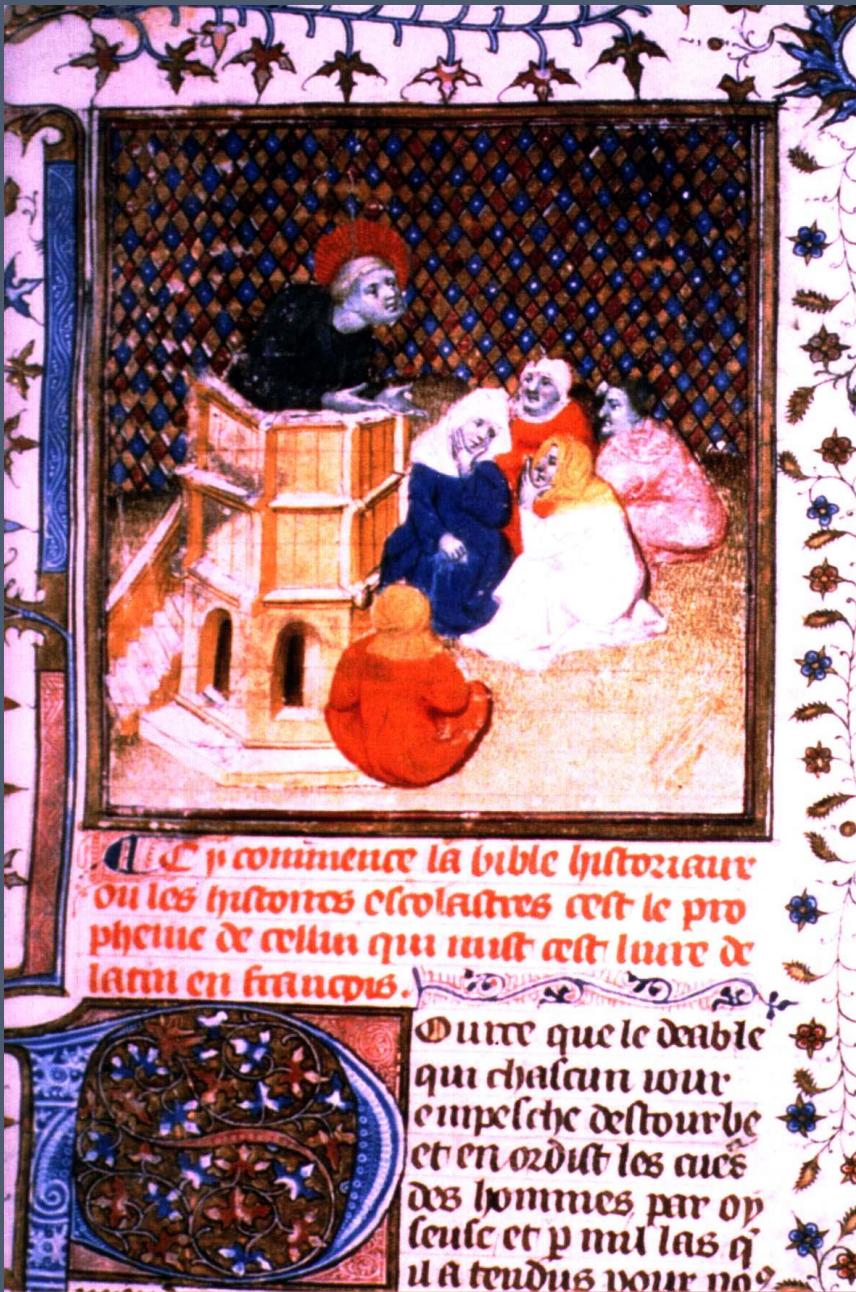 Cy commence la bible historiaux
ou les histoires escolastres cest le pro
pheme de cellui qui mist cest liure de
latin en francois.
Pource que le deable
qui chascun iour
empesche destourbe
et en ordist les cues
des hommes par oy
seuse et p mil las q
il a tendus pour no9